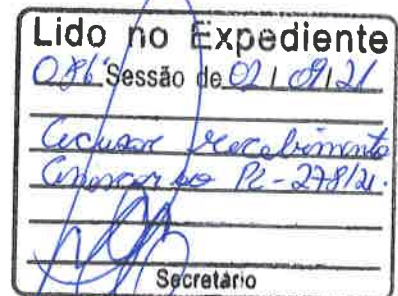 Lido no Expediente
086ª Sessão de 02/09/21
Acusar recebimento
Anexar ao PL-278/21.
Secretário